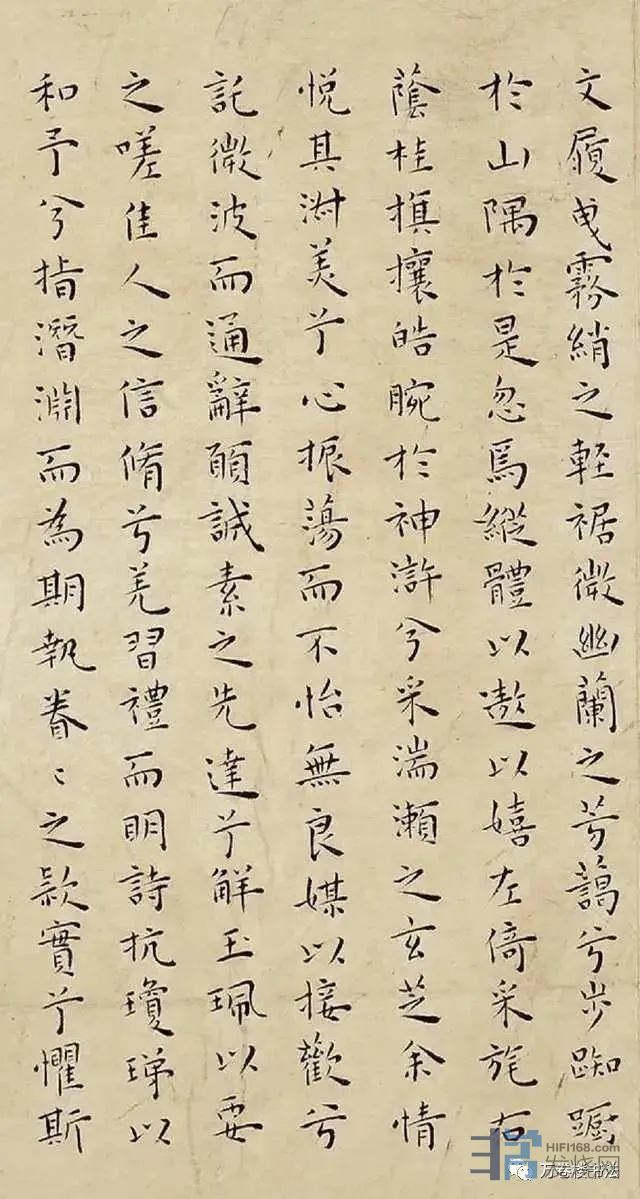 文履曳霧綃之輕裾微幽蘭之芳藹兮步踟躕
於山隅於是忽焉縱體以遨以嬉左倚采旄右
蔭桂旗攘皓腕於神滸兮采湍瀨之玄芝余情
悅其淑美兮心振蕩而不怡無良媒以接歡兮
託微波而通辭願誠素之先達兮解玉珮以要
之嗟佳人之信脩兮羌習禮而明詩抗瓊珶以
和予兮指潛淵而為期執眷〻之款實兮懼斯
HIFI168.com
发烧网
万卷楼书法